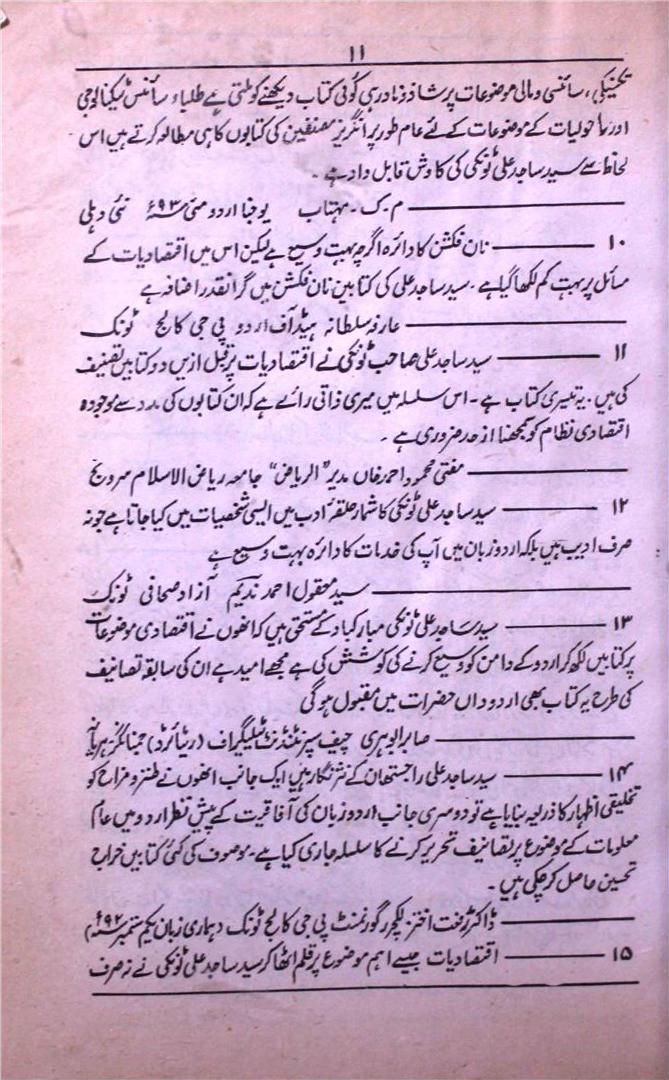 ۱۱
تکنیکی، سائنسی ومالی موضوعات پر شاذ ونادر ہی کوئی کتاب دیکھنے کو ملتی ہے طلباء سائنس ٹیکنالوجی
اور ماحولیات کے موضوعات کے لئے عام طور پر انگریز مصنفین کی کتابوں کا ہی مطالعہ کرتے ہیں اس
لحاظ سے سید ساجد علی ٹونکی کی کاوش قابل داد ہے۔
م۔ک۔مہتاب یوجنا اردو مئی ۹۳ء نئی دہلی
۱۰ نان فکشن کا دائرہ اگرچہ بہت وسیع ہے لیکن اس میں اقتصادیات کے
مسائل پر بہت کم لکھا گیا ہے۔ سید ساجد علی کی کتابیں نان فکشن میں گرانقدر اضافہ ہے
عارفہ سلطانہ ہیڈ آف اردو پی جی کالج ٹونک
۱۱ سید ساجد علی صاحب ٹونکی نے اقتصادیات پر قبل ازیں دو کتابیں تصنیف
کی ہیں۔ یہ تیسری کتاب ہے۔ اس سلسلہ میں میری ذاتی رائے ہے کہ ان کتابوں کی مدد سے موجودہ
اقتصادی نظام کو سمجھنا از حد ضروری ہے۔
مفتی محمود احمد خاں مدیر "الریاض" جامعہ ریاض الاسلام سرونج
۱۲ سید ساجد علی ٹونکی کا شمار حلقۂ ادب میں ایسی شخصیات میں کیا جاتا ہے جو نہ
صرف ادیب ہیں بلکہ اردو زبان میں آپ کی خدمات کا دائرہ بہت وسیع ہے
سید معقول احمد ندیم آزاد صحافی ٹونک
۱۳ سید ساجد علی ٹونکی مبارکباد کے مستحق ہیں کہ انھوں نے اقتصادی موضوعات
پر کتابیں لکھ کر اردو کے دامن کو وسیع کرنے کی کوشش کی ہے مجھے امید ہے ان کی سابقہ تصانیف
کی طرح یہ کتاب بھی اردو داں حضرات میں مقبول ہوگی
صابر ابوہری چیف سپرنٹنڈنٹ ٹیلیگراف (ریٹائرڈ) جمنانگر ہریانہ
۱۴ سید ساجد علی راجستھان کے نثر نگار ہیں ایک جانب انھوں نے طنز و مزاح کو
تخلیقی اظہار کا ذریعہ بنایا ہے تو دوسری جانب اردو زبان کی آفاقیت کے پیش نظر اردو میں عام
معلومات کے موضوع پر تصانیف تحریر کرنے کا سلسلہ جاری کیا ہے۔ موصوف کی کئی کتابیں خراج
تحسین حاصل کرچکی ہیں۔
ڈاکٹر رخت اختر لیکچرر گورنمنٹ پی جی کالج ٹونک (ہماری زبان یکم ستمبر ۹۲ء)
۱۵ اقتصادیات جیسے اہم موضوع پر قلم اٹھاکر سید ساجد علی ٹونکی نے نہ صرف